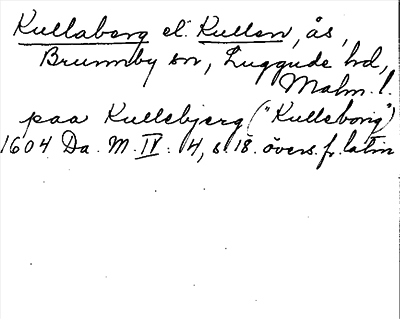 Kullaberg el. Kullen, ås,
Brunnby sn, Luggude hd,
Malm. l.
paa Kullebjerg ("Kulleborig")
1604 Da. M. IV: 4, s. 18. övers. fr. latin